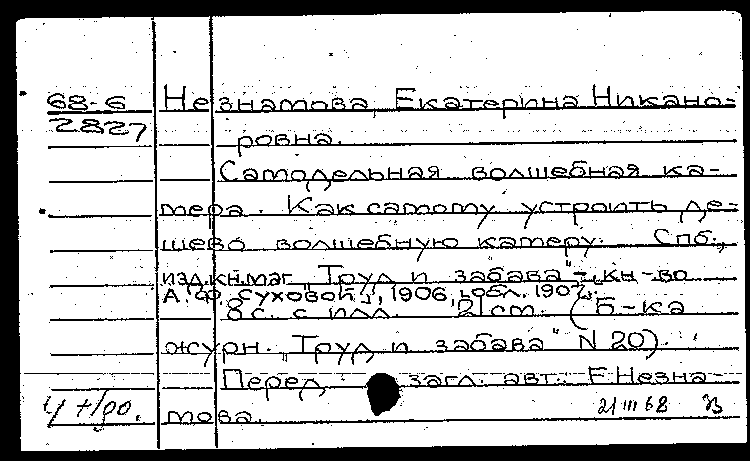 68-6
2827
Незнамова, Екатерина Никано-
ровна.
Самодельная волшебная ка-
мера. Как самому устроить де-
шево волшебную камеру. Спб.,
изд. кн. маг. "Труд и забава" - кн-во
А. Ф. Суховой, 1906, обл. 1907.
8 с. с илл. 21 см. (Б-ка
журн. "Труд и забава" N 20).
Перед загл. авт.: Е. Незна-
мова.
21 III 68